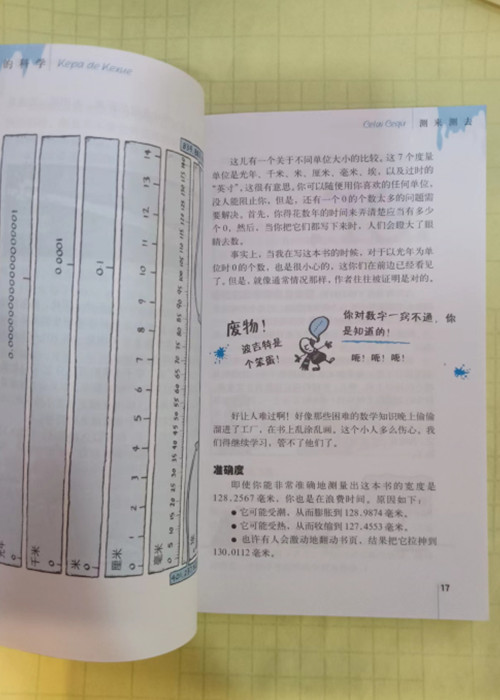 的科学 Kepa de Kexue
0.000000000000000001
0.0001
0.1
0
千米
0
米
0
厘米
0 1 2 3 4 5 6 7 8 9 10 11 12 13 14
毫米
0 5 10 15 20 25 30 35 40 45 50 55 60 65 70 75 80 85 90 95 100 105 110 115 120 125 130 135 140
Celai Cequ 测来测去
这儿有一个关于不同单位大小的比较。这7个度量
单位是光年、千米、米、厘米、毫米、埃，以及过时的
“英寸”。这很有意思。你可以随便用你喜欢的任何单位，
没人能阻止你。但是，还有一个0的个数太多的问题需
要解决。首先，你得花数年的时间来弄清楚应当有多少
个0。然后，当你把它们都写下来时，人们会瞪大了眼
睛去数。
事实上，当我在写这本书的时候，对于以光年为单
位时0的个数，也是很小心的，这你们在前边已经看见
了。但是，就像通常情况那样，作者往往被证明是对的。
废物！
波吉特是
个笨蛋！
你对数字一窍不通，你
是知道的！
呃！呃！呃！
好让人难过啊！好像那些困难的数学知识晚上偷偷
溜进了工厂，在书上乱涂乱画。这个小人多么伤心。我
们得继续学习，管不了他们了。
准确度
即使你能非常准确地测量出这本书的宽度是
128.2567毫米，你也是在浪费时间。原因如下：
● 它可能受潮，从而膨胀到128.9874毫米。
● 它可能受热，从而收缩到127.4553毫米。
● 也许有人会激动地翻动书页，结果把它拉伸到
130.0112毫米。
17